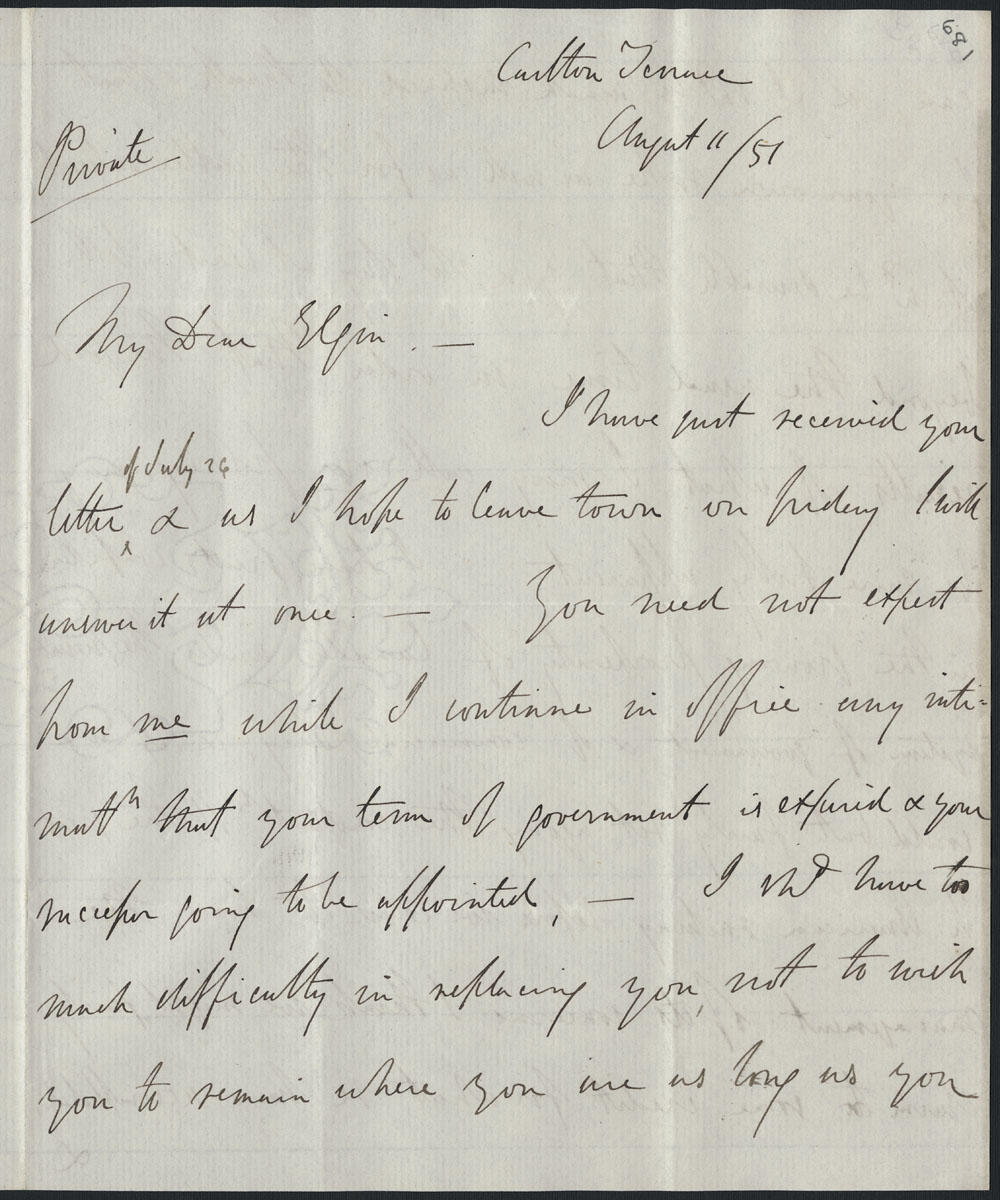 189
Carlton Terrace
August 11/51
Private
My Dear Elgin. —
I have just received your
of July 26
letter & as I hope to leave town on friday I will
answer it at once. — You need not expect
from me while I continue in office any inti-
matn that your term of government is expired & your
successor going to be appointed, — I shd have too
much difficulty in replacing you, not to wish
you to remain where you are as long as you